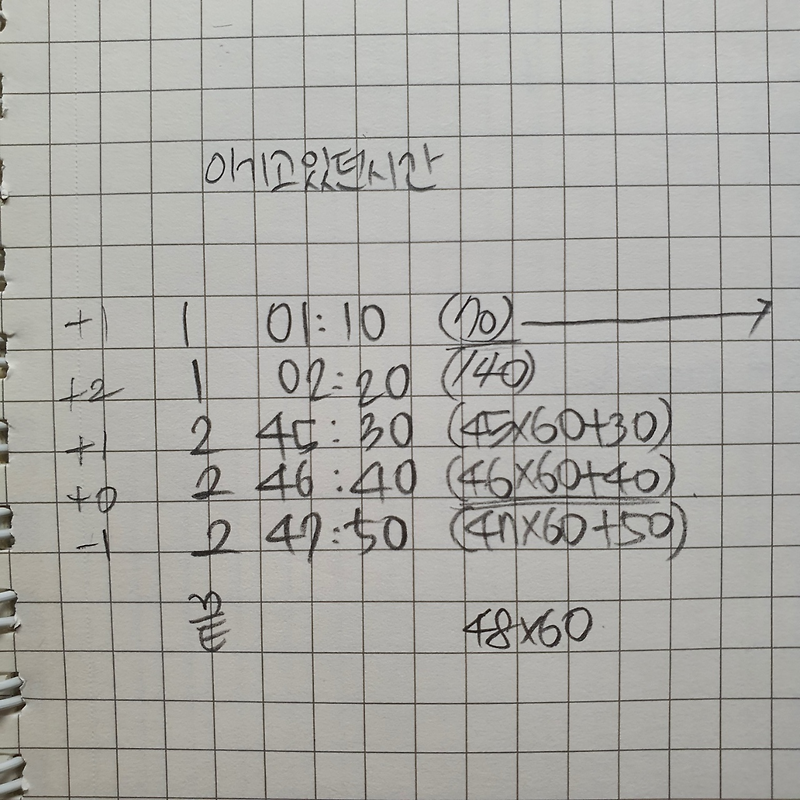 이기고있던시간
+1 1 01:10 (70)
+2 1 02:20 (140)
+1 2 45:30 (45×60+30)
+0 2 46:40 (46×60+40)
-1 2 47:50 (47×60+50)
48×60